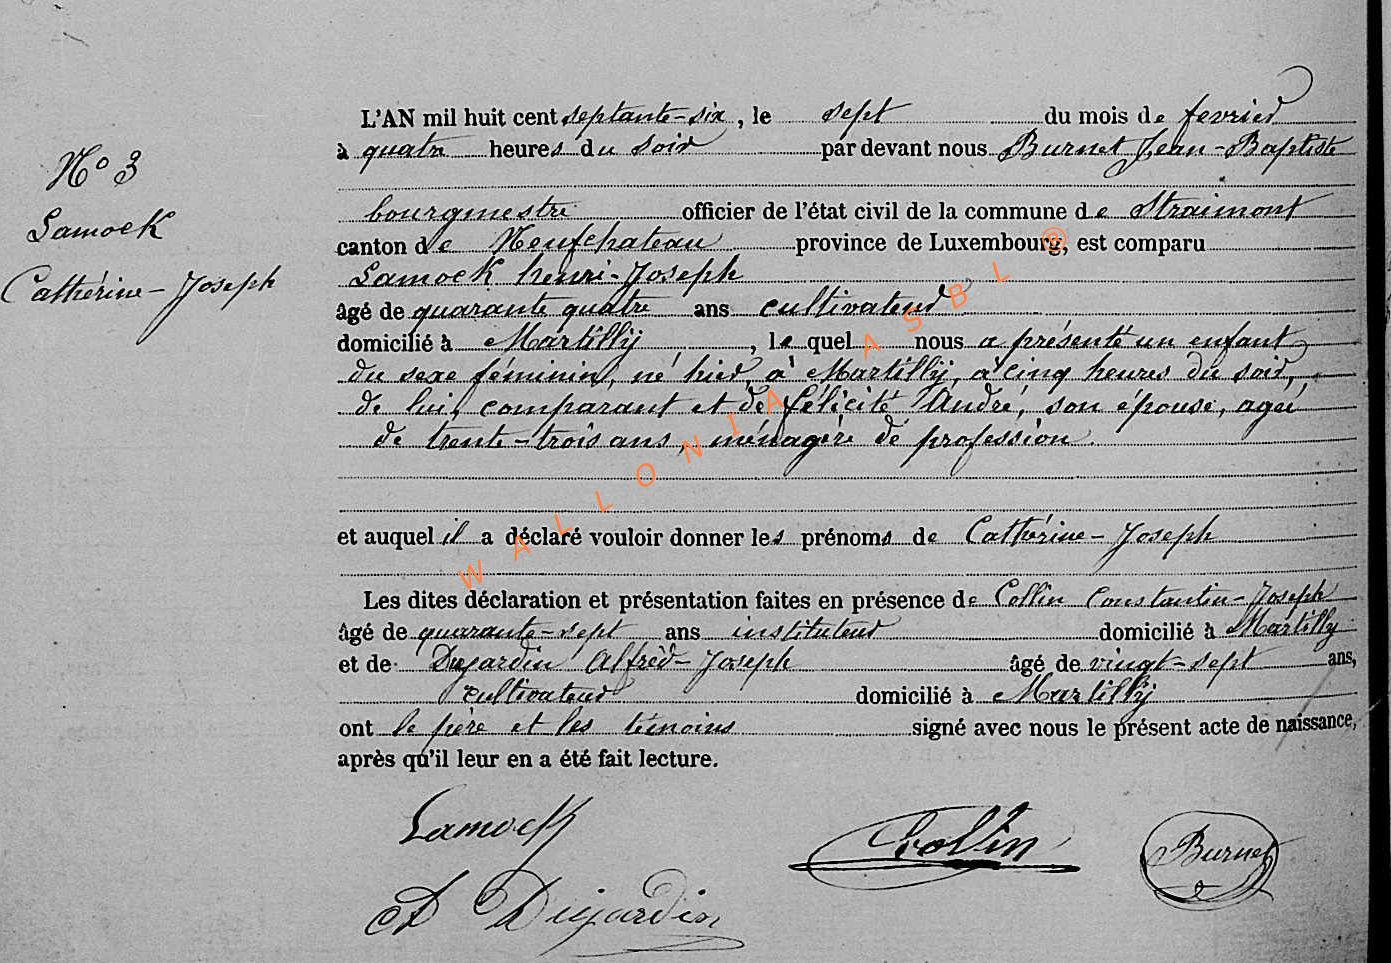 L'AN mil huit cent septante-six, le sept du mois de fevrier
à quatre heures du soir par devant nous Burnet Jean-Baptiste
bourgmestre officier de l'état civil de la commune de Straimont
canton de Neufchateau province de Luxembourg, est comparu
Lamock henri-Joseph
âgé de quarante quatre ans cultivateur
domicilié à Martilly, le quel nous a présenté un enfant
du sexe féminin, né hier, à Martilly, à cinq heures du soir,
de lui, comparant et de félicité André, son épouse, agée
de trente-trois ans, ménagère de profession.
et auquel il a déclaré vouloir donner les prénoms de Cathérine-Joseph
Les dites déclaration et présentation faites en présence de Collin Constantin-Joseph
âgé de quarante-sept ans instituteur domicilié à Martilly
et de Dujardin Alfred-Joseph âgé de vingt-sept ans,
cultivateur domicilié à Martilly
ont le père et les témoins signé avec nous le présent acte de naissance,
après qu'il leur en a été fait lecture.
No 3
Lamock
Cathérine-Joseph
Lamock
Collin
Burnet
A Dujardin
WALLONIA ASBL ®